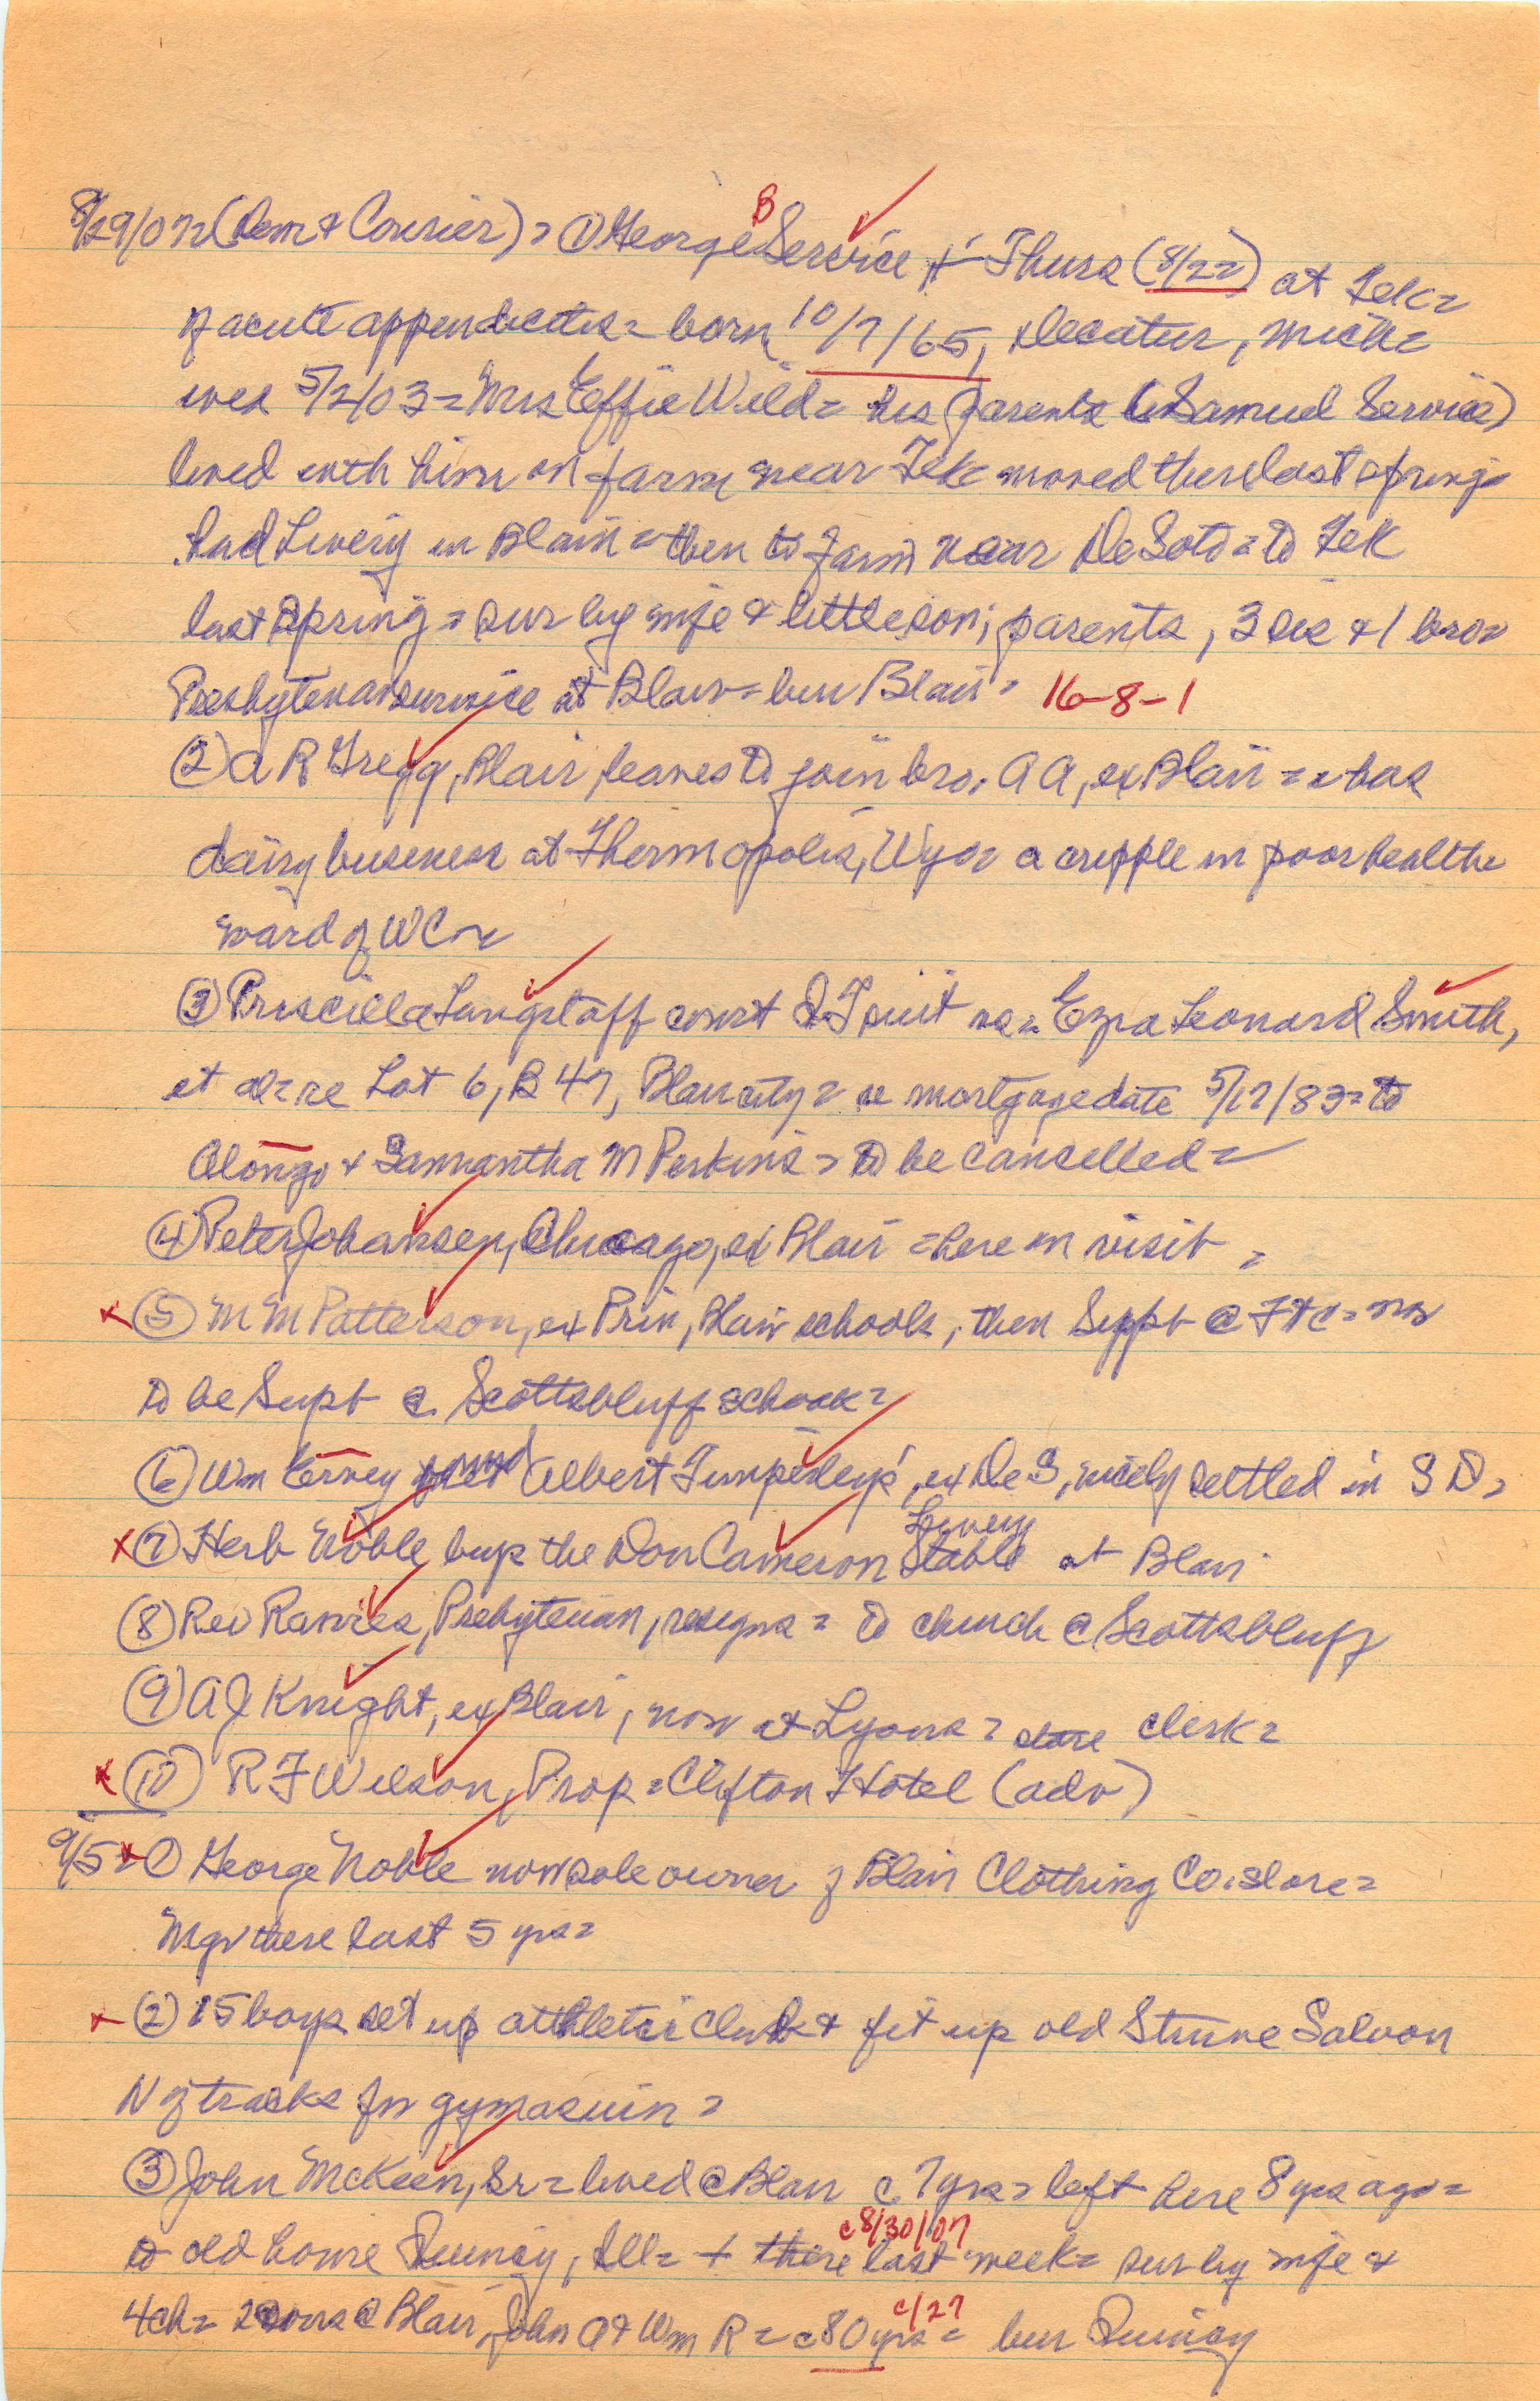 8/29/07=(Dem & Courier)= ① George B Service + Thurs (8/22) at Tek=
of acute appendicites= born 10/7/65, Decatur, Mich=
wed 5/2/03=Mrs Effie Wild= his parents (Samuel Service)
lived with him on farm near Tek= moved there last spring=
had Livery in Blair=then to farm near DeSoto= to Tek
last Spring= sur by wife & little son; parents, 3 sis & 1 bro=
Presbyterian service at Blair= bur Blair= 16-8-1
② A R Gregg, Blair, leaves to join bro. A A, ex Blair= has
dairy business at Thermopolis, Wyo= a cripple in poor health=
ward of WC=
③ Priscilla Langstaff court suit vs= Ezra Leonard Smith,
et al= re Lot 6, B 47, Blair city= re mortgage date 5/17/83= to
Alonzo & Samantha M Perkins= to be cancelled=
④ Peter Johansen, Chicago, ex Blair= here on visit=
x ⑤ M M Patterson, ex Prin, Blair schools, then Supt @ Ft C= now
to be Supt @ Scottsbluff schools=
⑥ Wm Ervey and Albert Timperleys', ex De S, nicely settled in S D=
x ⑦ Herb Noble buys the Don Cameron Livery Stable at Blair
⑧ Rev Presbyterian, resigns= to church @ Scottsbluff
⑨ A J Knight, ex Blair, now at Lyons= store clerk=
x ⑩ R F Wilson, Prop= Clifton Hotel (adv)
9/5= x ① George Noble now sole owner of Blair Clothing Co. store=
Mgr there last 5 yrs=
x ② 15 boys set up athletic club & fit up old Struve Saloon
N of tracks for gymasium=
③ John McKeen, Sr= lived @ Blair c 7 yrs= left here 8 yrs ago=
to old home Quincy, Ill= + there last week= c8/30/07 sur by wife &
4 ch= 2 sons @ Blair, John A & Wm R= c80 yrs= c/27 bur Quincy